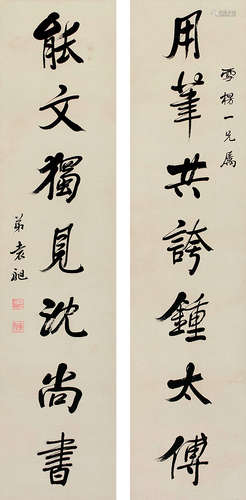 雪楞一兄屬
用筆共誇鍾太傅
能文獨見沈尚書
弟袁昶